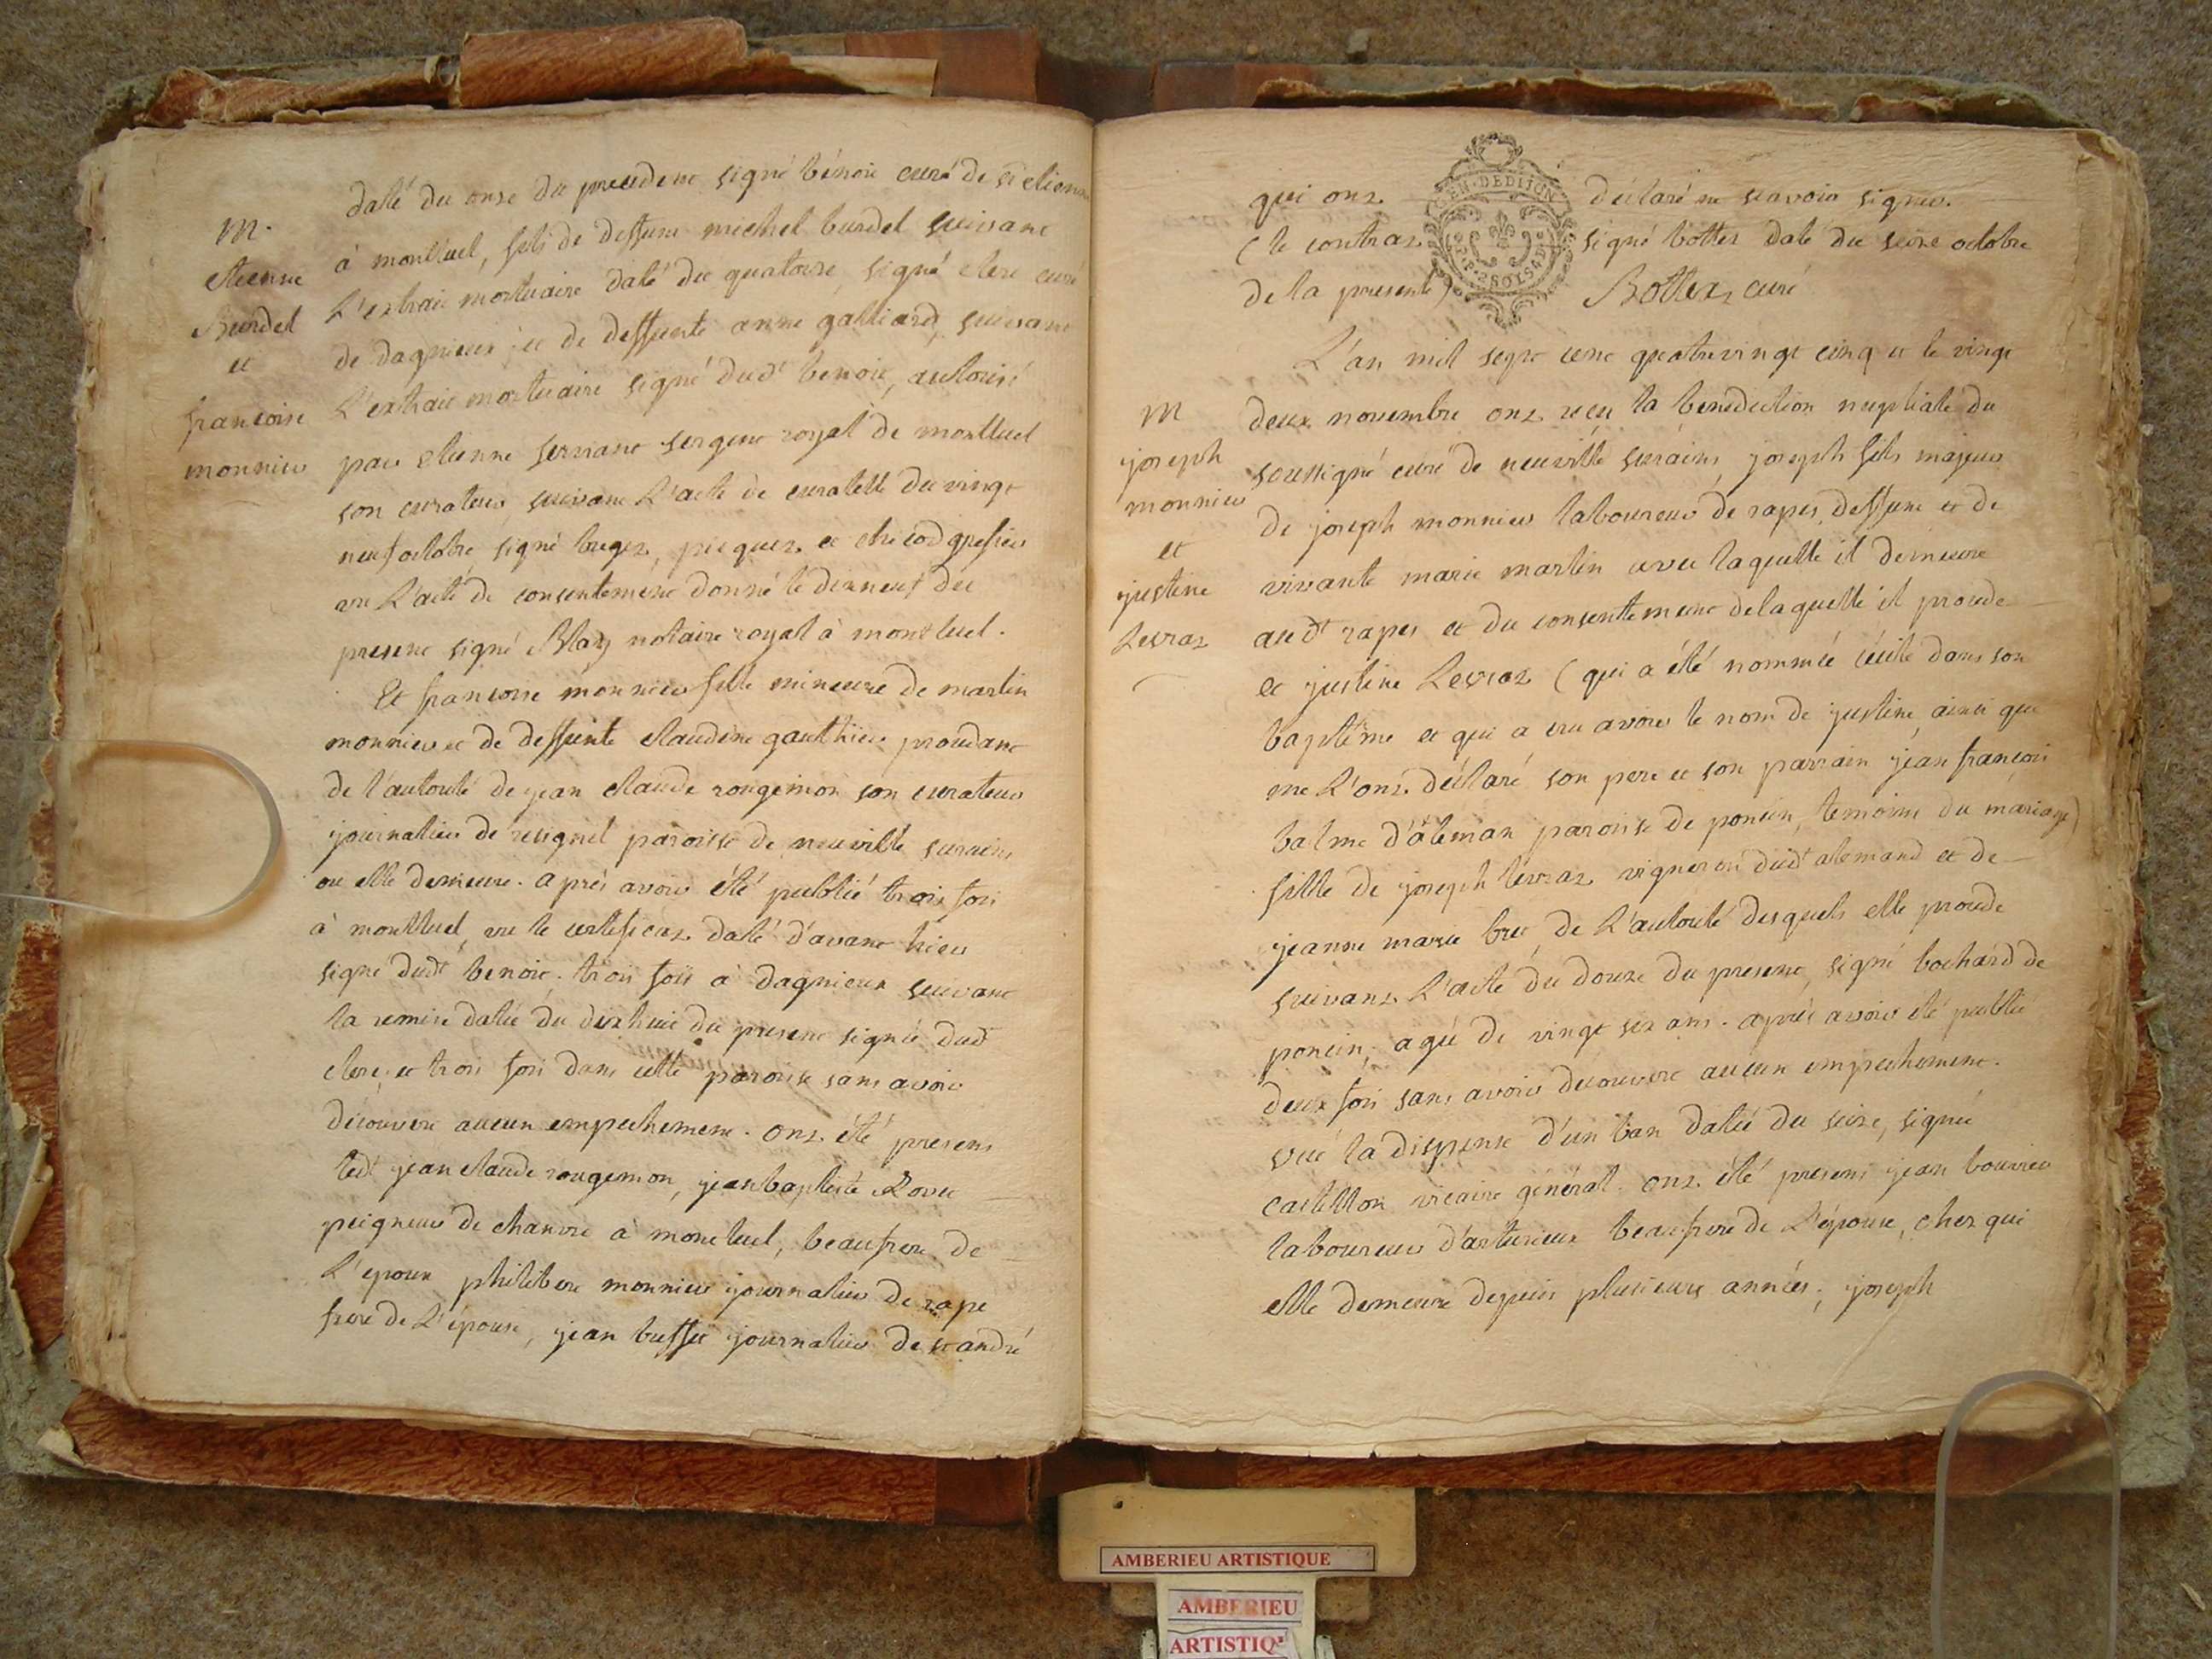 daté du onze du precedent signé bénoit curé de st etienne
M.
etienne
Burdel
et
francoise
monnier
à montluel, fils de deffunt michel burdel suivant
L'extrait mortuaire daté du quatorze, signé clerc curé
de dagnieux ; et de deffunte anne galliard, suivant
L'extrait mortuaire signé dudt benoit, autorisé
par etienne servant sergent royal de montluel
son curateur, suivant L'acte de curatelle du vingt
neuf octobre signé
vu L'acte de consentement donné le dixneuf du
present signé notaire royal à montluel.
Et francoise monnier fille mineure de martin
monnier et de deffunte claudine gauthier procedant
de l'autorité de jean claude rougemon son curateur
journalier de resignel paroisse de neuville surains
ou elle demeure. après avoir été publié trois fois
à montluel, vu le certificat daté d'avant hier
signé dudt benoit. trois fois à dagnieux suivant
la remise datée du dixhuit du present signée dudt
clerc, et trois fois dans cette paroisse sans avoir
découvert aucun empechement. ont été presens
ledt jean claude rougemon, jean baptiste Rover
peigneur de chanvre à montluel, beaufrere de
L'epoux philibert monnier journalier de rape
frere de L'épouse, jean buffet journalier de st andré
qui ont déclaré ne scavoir signer.
(le contrat signé bottex daté du seize octobre
de la presente) Bottex, curé
GEN. DE DIJON
P. P. 2 SOLS 4 D
M
joseph
monnier
et
justine
Levrat
L'an mil sept cent quatrevingt cinq et le vingt
deux novembre ont reçu la benediction nuptiale du
soussigné curé de neuville surains joseph fils majeur
de joseph monnier laboureur de rapes, deffunt et de
vivante marie martin avec laquelle il demeure
audt rapes et du consentement de laquelle il procede
et justine Levrat (qui a été nommée cécile dans son
baptême et qui a cru avoir le nom de justine, ainsi que
me L'ont déclaré son pere et son parrain jean françois
balme d'aleman paroisse de poncin, temoins du mariage)
fille de joseph levrat vigneron dudt alemand et de
jeanne marie bree, de L'autorité desquels elle procede
suivant L'acte du douze du present, signé bochard de
poncin, agée de vingt six ans. après avoir été publié
deux fois sans avoir decouvert aucun empechement.
vue la dispense d'un ban datée du seize, signée
castillon vicaire général. ont été presens jean bouvier
laboureur d'arturieux beaufrere de L'épouse, chez qui
elle demeure depuis plusieurs années ; joseph
AMBERIEU ARTISTIQUE
AMBERIEU
ARTISTIQ